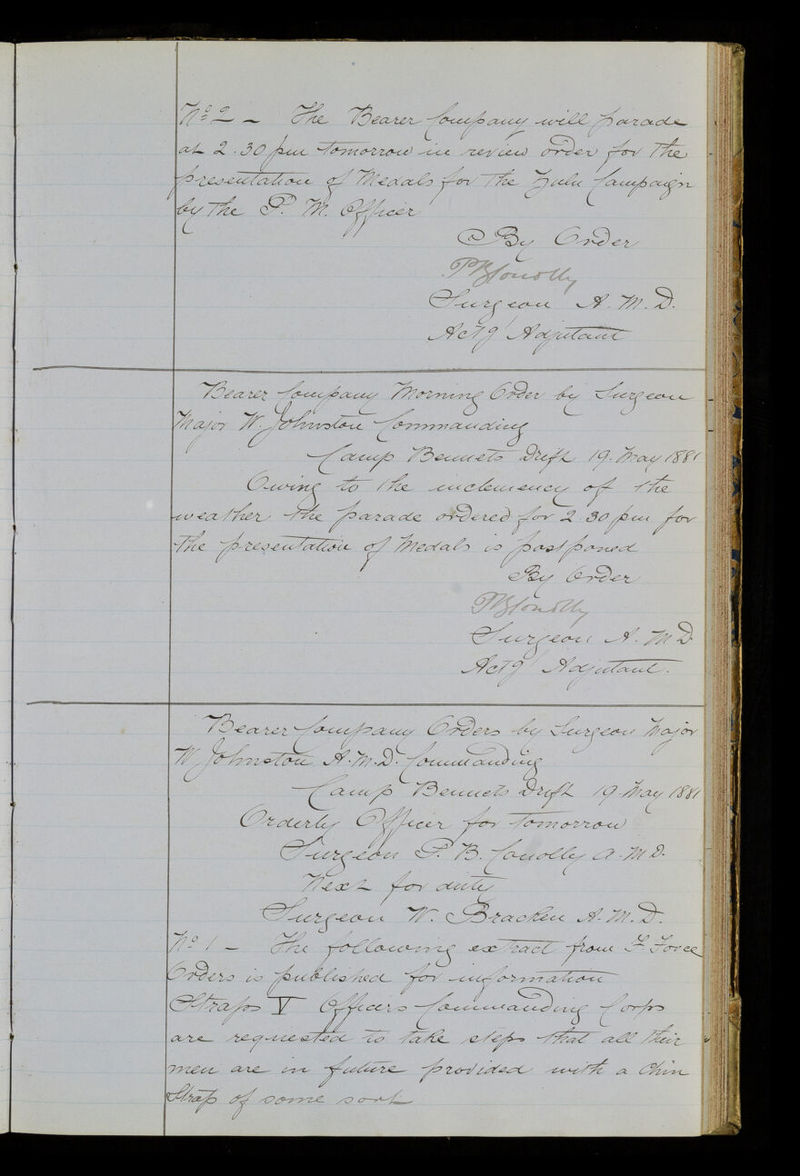 No 2 - The Bearer Company will parade
at 2.30 pm tomorrow in review order for the
presentation of Medals for the Zulu Campaign
by the P. M. Officer
By Order
PBConolly
Surgeon A. M. D.
Actg Adjutant
Bearer Company Morning Order by Surgeon
Major W. Johnston Commanding
Camp Bennets Drift 19. May 1881
Owing to the inclemency of the
weather the parade ordered for 2.30 pm for
the presentation of Medals is postponed
By Order
PBConolly
Surgeon A. M. D
Actg Adjutant.
Bearer Company Orders by Surgeon Major
W. Johnston A.M.D. Commanding
Camp Bennets Drift 19 May 1881
Orderly Officer for tomorrow
Surgeon P. B. Conolly A. M. D.
Next for duty
Surgeon W. Bracken A. M. D.
No 1 - The following extract from F. Force
Orders is published for information
Straps V Officers Commanding Corps
are requested to take steps that all their
men are in future provided with a Chin
Strap of some sort